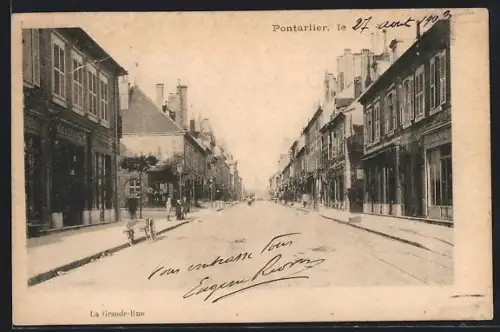 Pontarlier, le 27 août 1903
Vous embrasse Tous
Eugène
La Grande-Rue